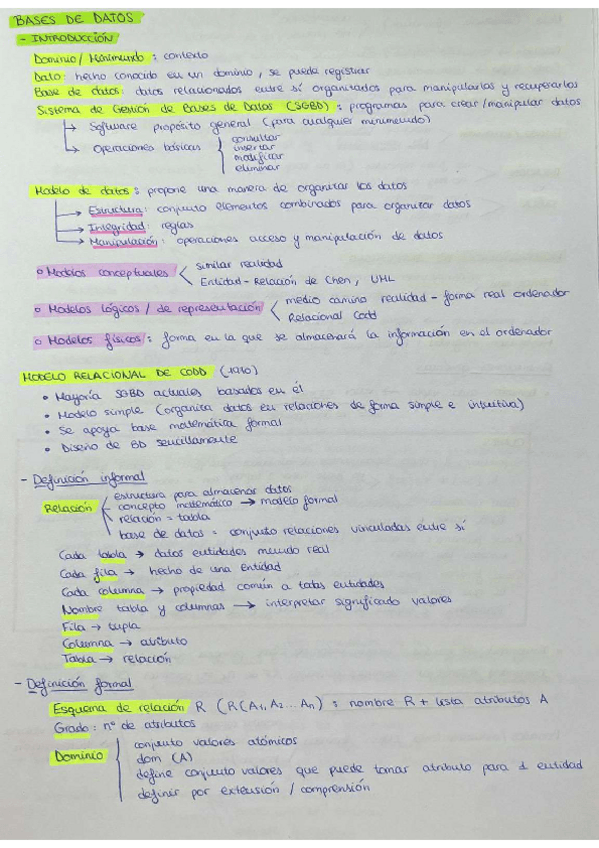 BASES DE DATOS
- INTRODUCCIÓN
Dominio / Minimundo : contexto
Dato : hecho conocido en un dominio, se puede registrar
Base de datos : datos relacionados entre sí organizados para manipularlos y recuperarlos
Sistema de Gestión de Bases de Datos (SGBD) : programas para crear/manipular datos
→ Software propósito general (para cualquier minimundo)
→ Operaciones básicas { consultar
insertar
modificar
eliminar
Modelo de datos : propone una manera de organizar los datos
→ Estructura : conjunto elementos combinados para organizar datos
→ Integridad : reglas
→ Manipulación : operaciones acceso y manipulación de datos
o Modelos conceptuales < similar realidad
Entidad - Relación de Chen, UML
o Modelos lógicos / de representación < medio camino realidad - forma real ordenador
Relacional Codd
o Modelos físicos : forma en la que se almacenará la información en el ordenador
MODELO RELACIONAL DE CODD (1970)
• Mayoría SGBD actuales basados en él
• Modelo simple (organiza datos en relaciones de forma simple e intuitiva)
• Se apoya base matemática formal
• Diseño de BD sencillamente
- Definición informal
Relación { estructura para almacenar datos
concepto matemático → modelo formal
relación = tabla
base de datos = conjunto relaciones vinculadas entre sí
Cada tabla → datos entidades mundo real
Cada fila → hecho de una entidad
Cada columna → propiedad común a todas entidades
Nombre tabla y columnas → interpretar significado valores
Fila → tupla
Columna → atributo
Tabla → relación
- Definición formal
Esquema de relación R (R(A1, A2... An) : nombre R + lista atributos A
Grado : nº de atributos
Dominio { conjunto valores atómicos
dom (A)
define conjunto valores que puede tomar atributo para 1 entidad
definir por extensión / comprensión